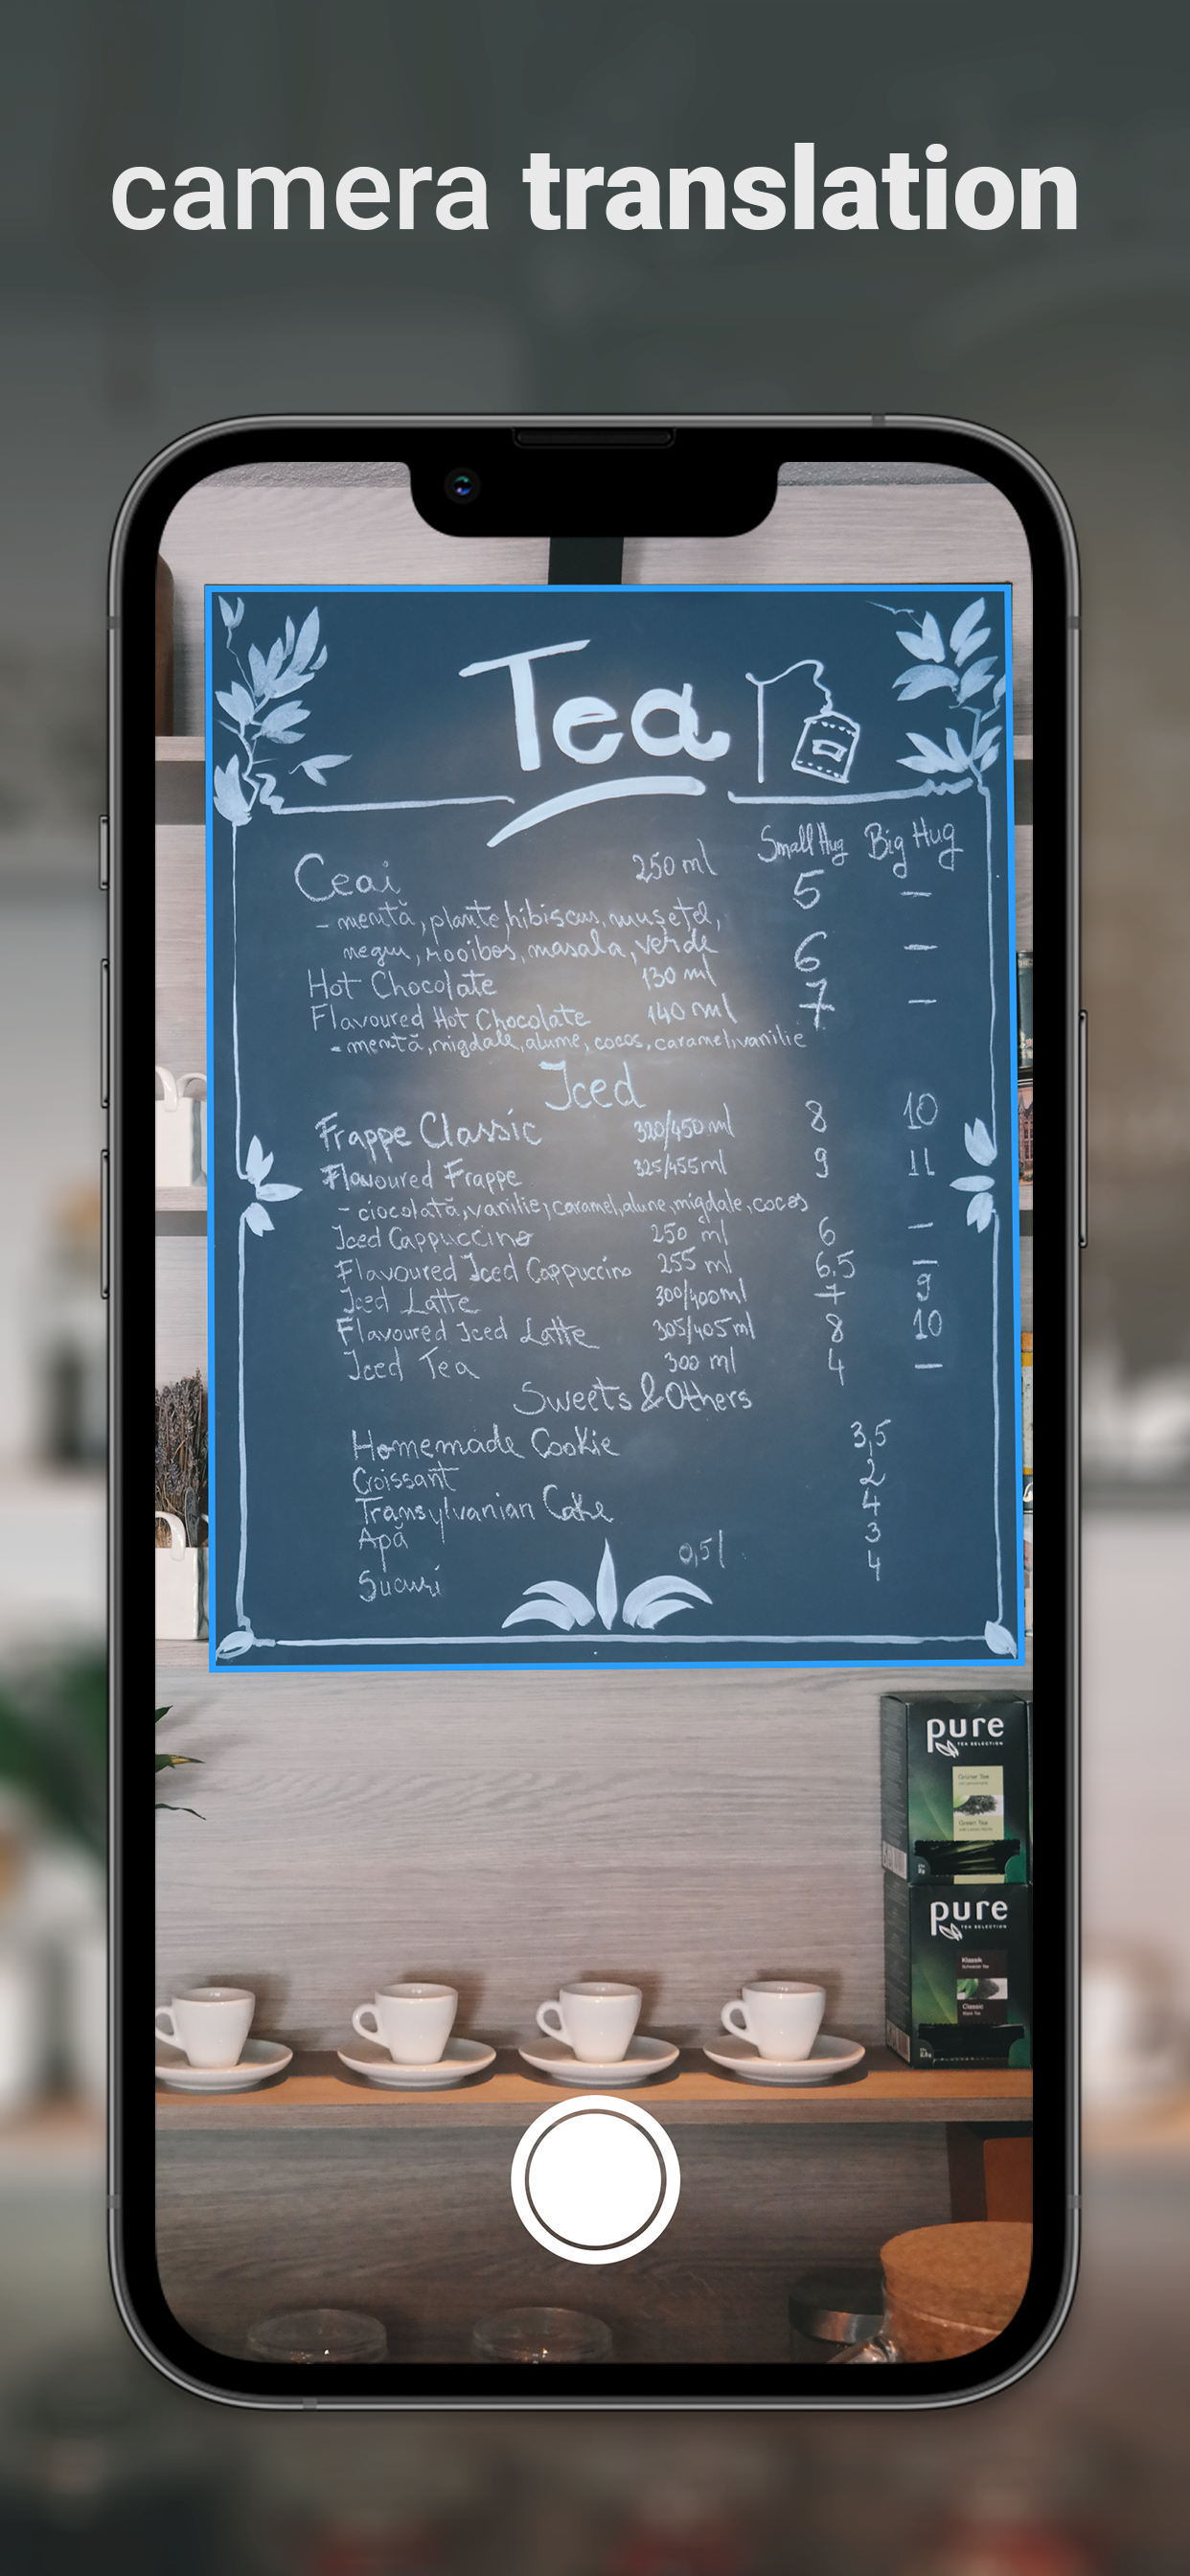 camera translation
Tea
Small Hug Big Hug
Ceai 250 ml 5 —
- mentă, plante, hibiscus, mușețel,
negru, rooibos, masala, verde
Hot Chocolate 130 ml 6 —
Flavoured Hot Chocolate 140 ml 7 —
- mentă, migdale, alune, cocos, caramel, vanilie
Iced
Frappe Classic 320/450 ml 8 10
Flavoured Frappe 325/455 ml 9 11
- ciocolată, vanilie, caramel, alune, migdale, cocos
Iced Cappuccino 250 ml 6 —
Flavoured Iced Cappuccino 255 ml 6,5 —
Iced Latte 300/400 ml 7 9
Flavoured Iced Latte 305/405 ml 8 10
Iced Tea 300 ml 4 —
Sweets & Others
Homemade Cookie 3,5
Croissant 2
Transylvanian Cake 4
Apă 0,5 l 3
Sucuri 4
pure
TEA SELECTION
Grüner Tee
Green Tea
pure
TEA SELECTION
Klassik
Schwarzer Tee
Classic
Black Tee